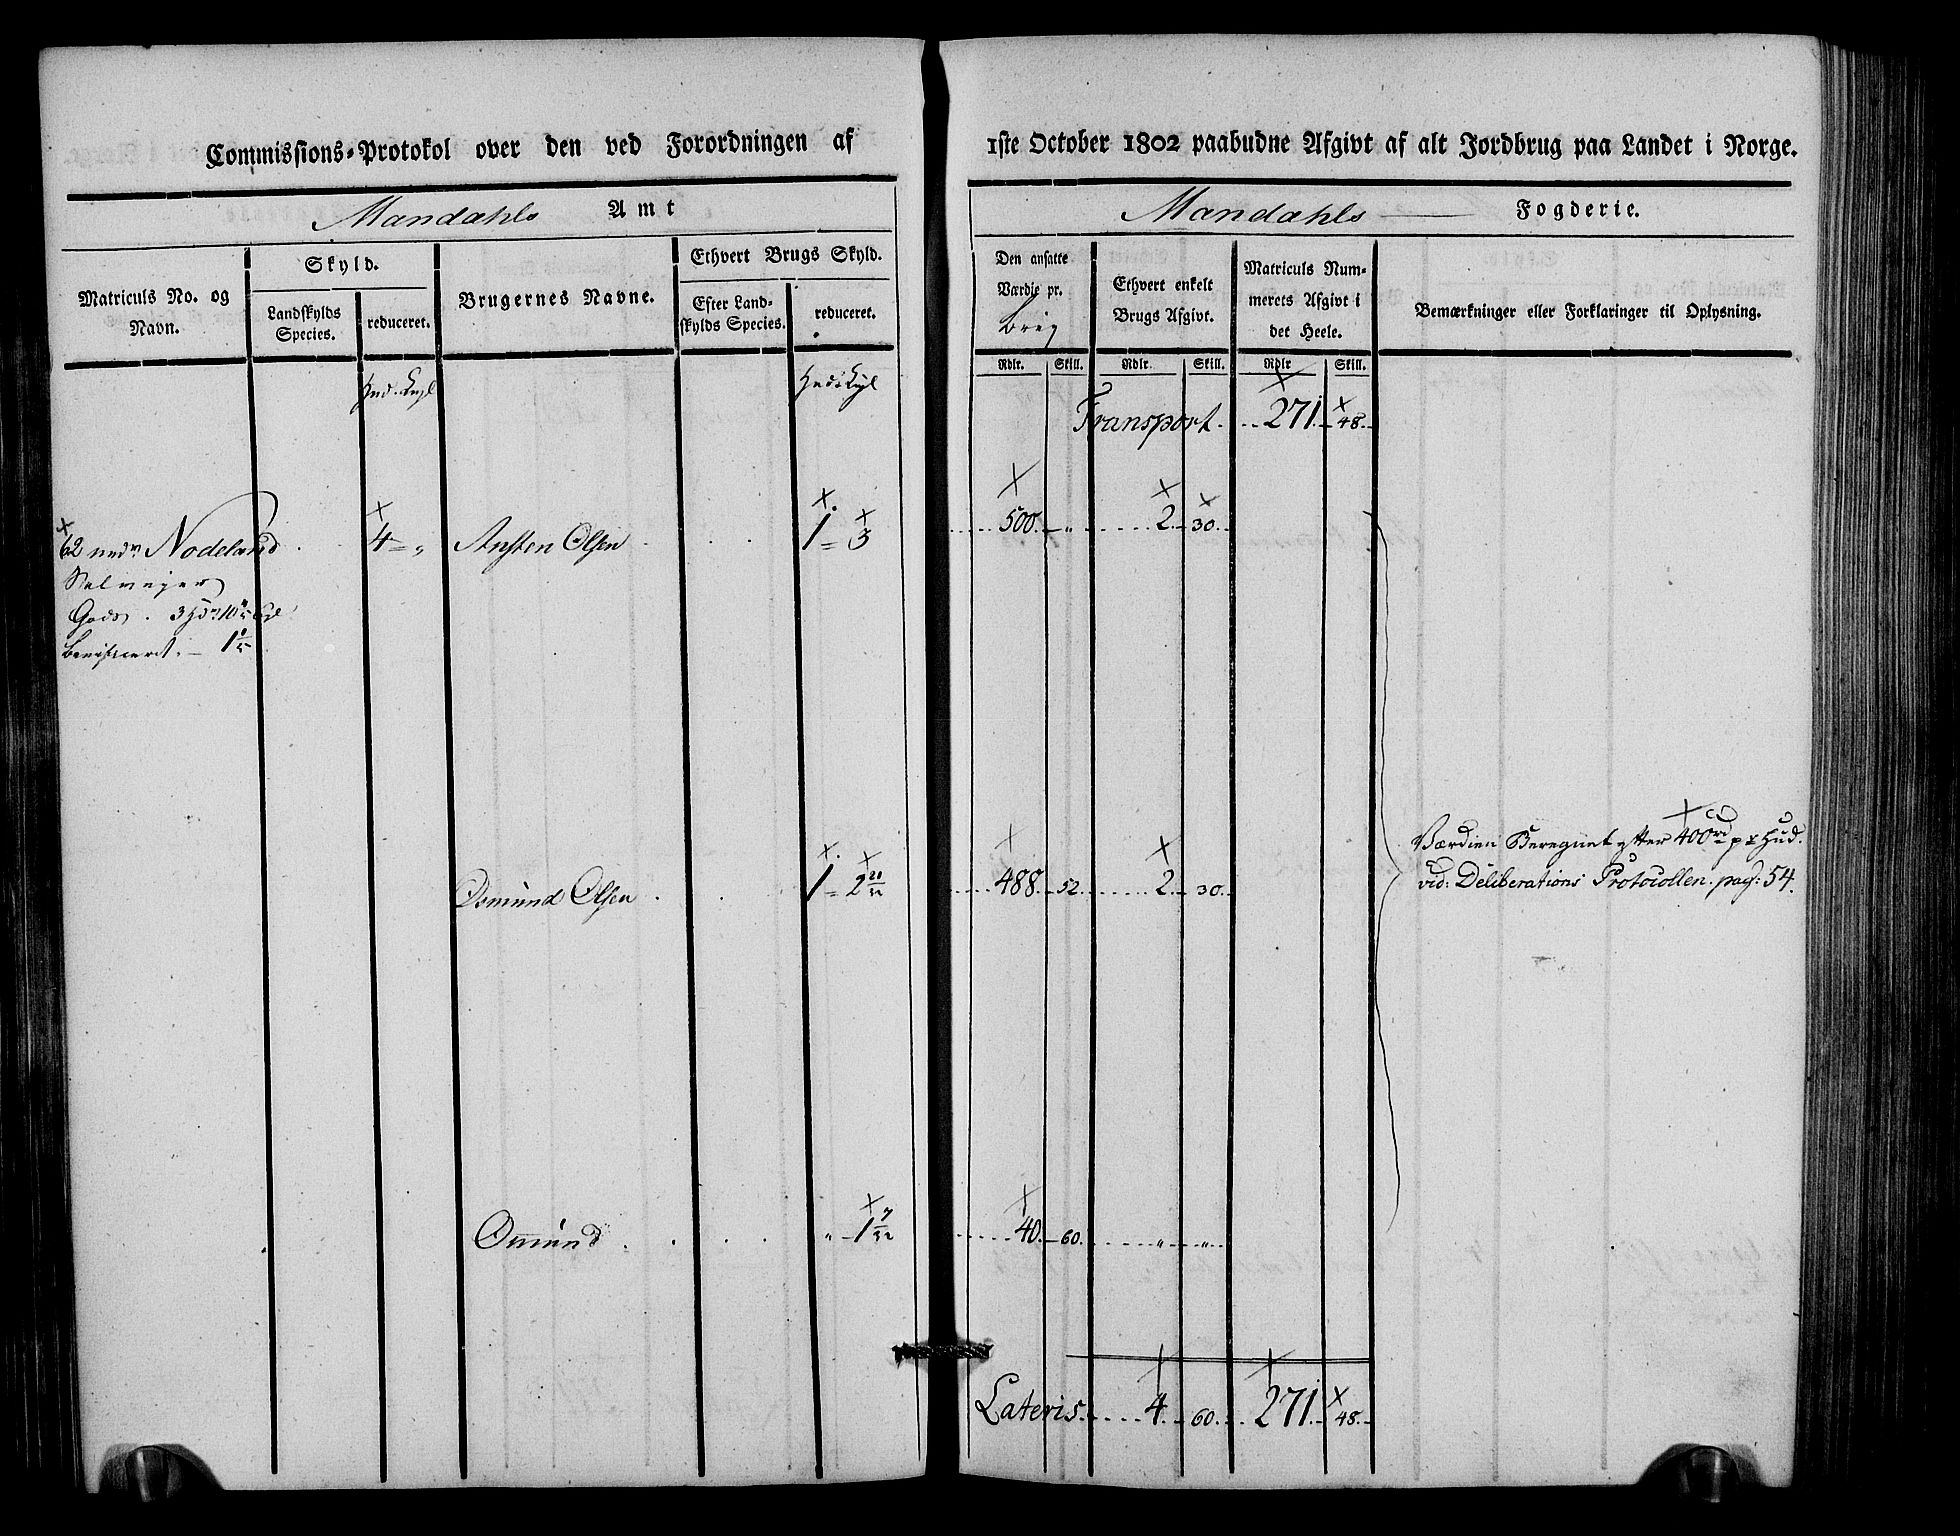 Commissions-Protokol over den ved Forordningen af
1ste October 1802 paabudne Afgivt af alt Jordbrug paa Landet i Norge.
Mandahls Amt
Mandahls Fogderie.
Matriculs No. og Navn.
Skyld.
Landskylds Species.
reduceret.
Brugernes Navne.
Ethvert Brugs Skyld.
Efter Landskylds Species.
reduceret.
Den ansatte Værdie pr. Brug
Ethvert enkelt Brugs Afgivt.
Matriculs Nummerets Afgivt i det Heele.
Bemærkninger eller Forklaringer til Oplysning.
Rdlr. Skill. Rdlr. Skill. Rdlr Skill.
Transport 271 48
62 nedr Nodeland 4 = „ Ansten Olsen 1 = 3 500 „ 2 30
Selveyer
Gods 3
Osmund Olsen 1 = 2 20/32 488 52 2 30
Værdien Beregnet efter 400rd pr Hud.
vid: Deliberations Protocollen pag: 54.
Osmund „ 1 7/32 40 60 „ „
Lateris 4 60 271 48